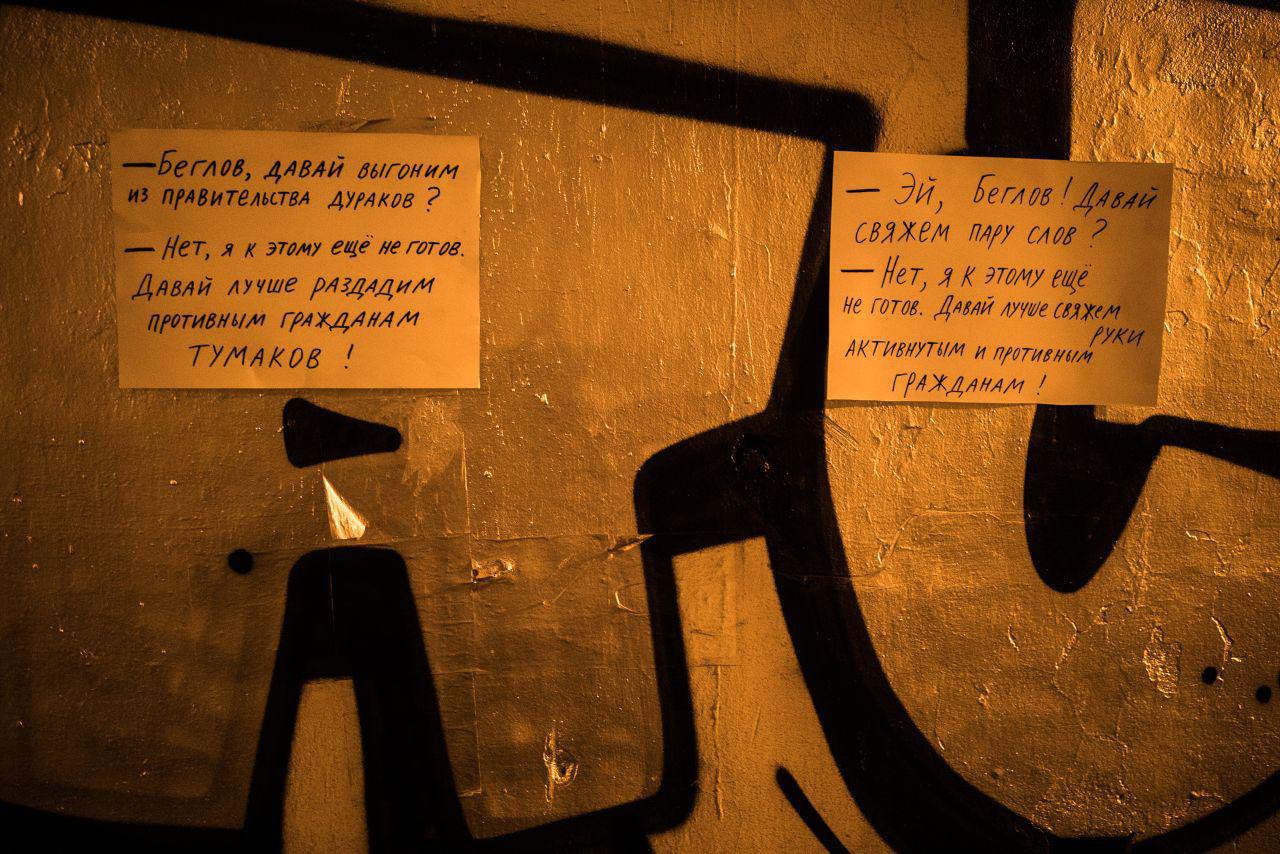 — Беглов, давай выгоним
из правительства дураков?
— Нет, я к этому ещё не готов.
Давай лучше раздадим
противным гражданам
тумаков!
— Эй, Беглов! Давай
свяжем пару слов?
— Нет, я к этому ещё
не готов. Давай лучше свяжем
руки
активнутым и противным
гражданам!